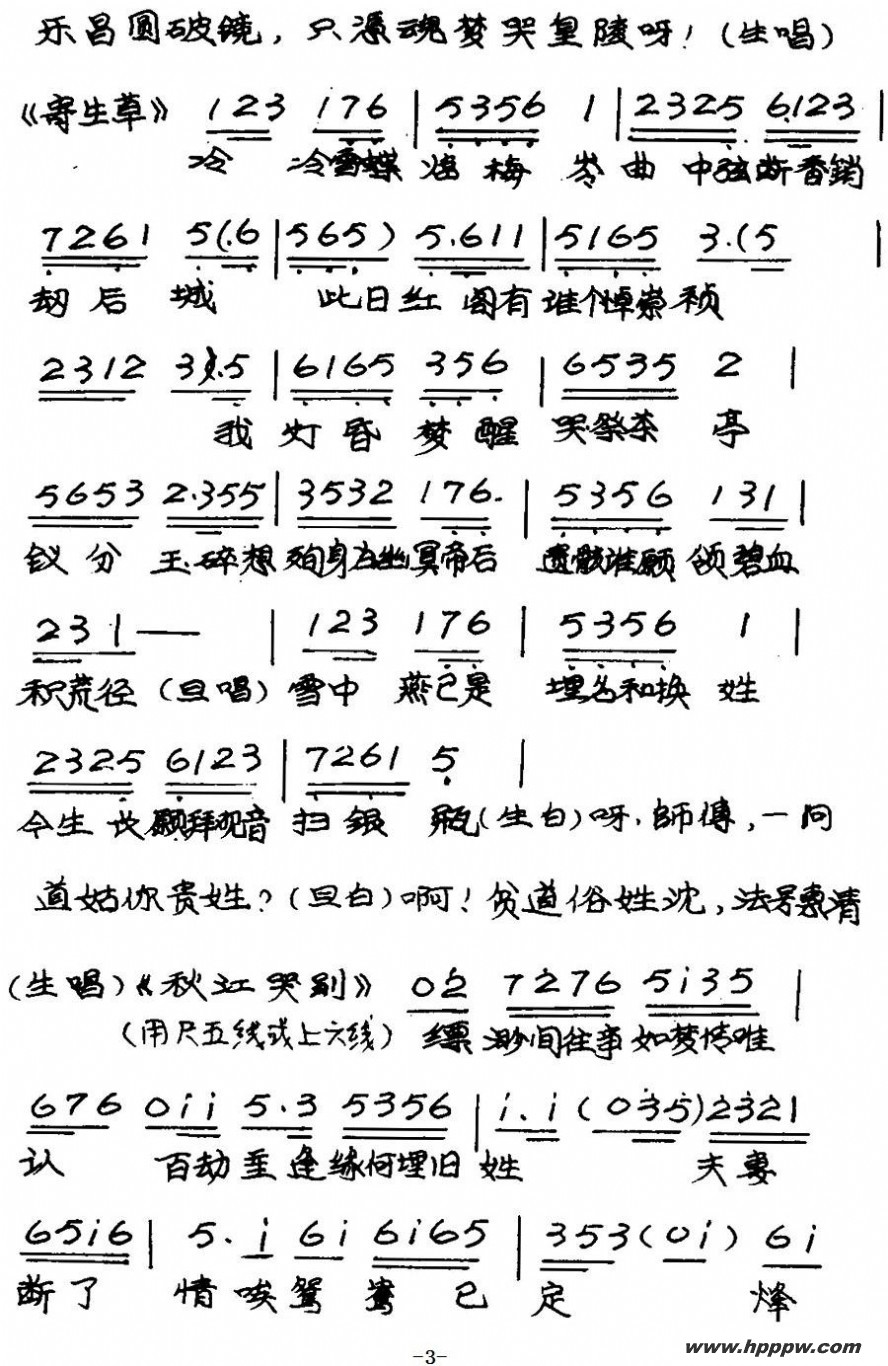 乐昌圆破镜，只凭魂梦哭皇陵呀！（生唱）
《寄生草》 123 176 | 5356 1 | 2325 6123 |
冷 冷雪蝶 临 梅 岑 曲 中弦断香销
7261 5(.6 | 565) 5.611 | 5165 3.(5 |
劫后 城 此日红 阁有谁个悼崇祯
2312 3).5 | 6165 356 | 6535 2 |
我 灯 昏 梦 醒 哭祭茶 亭
5653 2.355 | 3532 176. | 5356 131 |
钗 分 玉碎想殉身为幽冥帝后 遗骸谁愿 领碧血
231— | 123 176 | 5356 1 |
积荒径（旦唱）雪中 燕已是 埋名和换 姓
2325 6123 | 7261 5 |
今生 长愿拜观音 扫 银 瓶（生白）呀，師傅，一问
道姑你贵姓？（旦白）啊！贫道俗姓沈，法号惠清
（生唱）《秋江哭别》 02 7276 5i35 |
（用尺五线或上六线） 缥 渺间往事如梦情唯
676 0ii 5.3 5356 | i.i (035) 2321
认 百劫重逢缘何埋旧 姓 夫妻
65i6 | 5.i 6i 6i65 | 353(0i) 6i
断了 情唉鸳 鸯 已 定 烽
-3-
www.hpppw.com